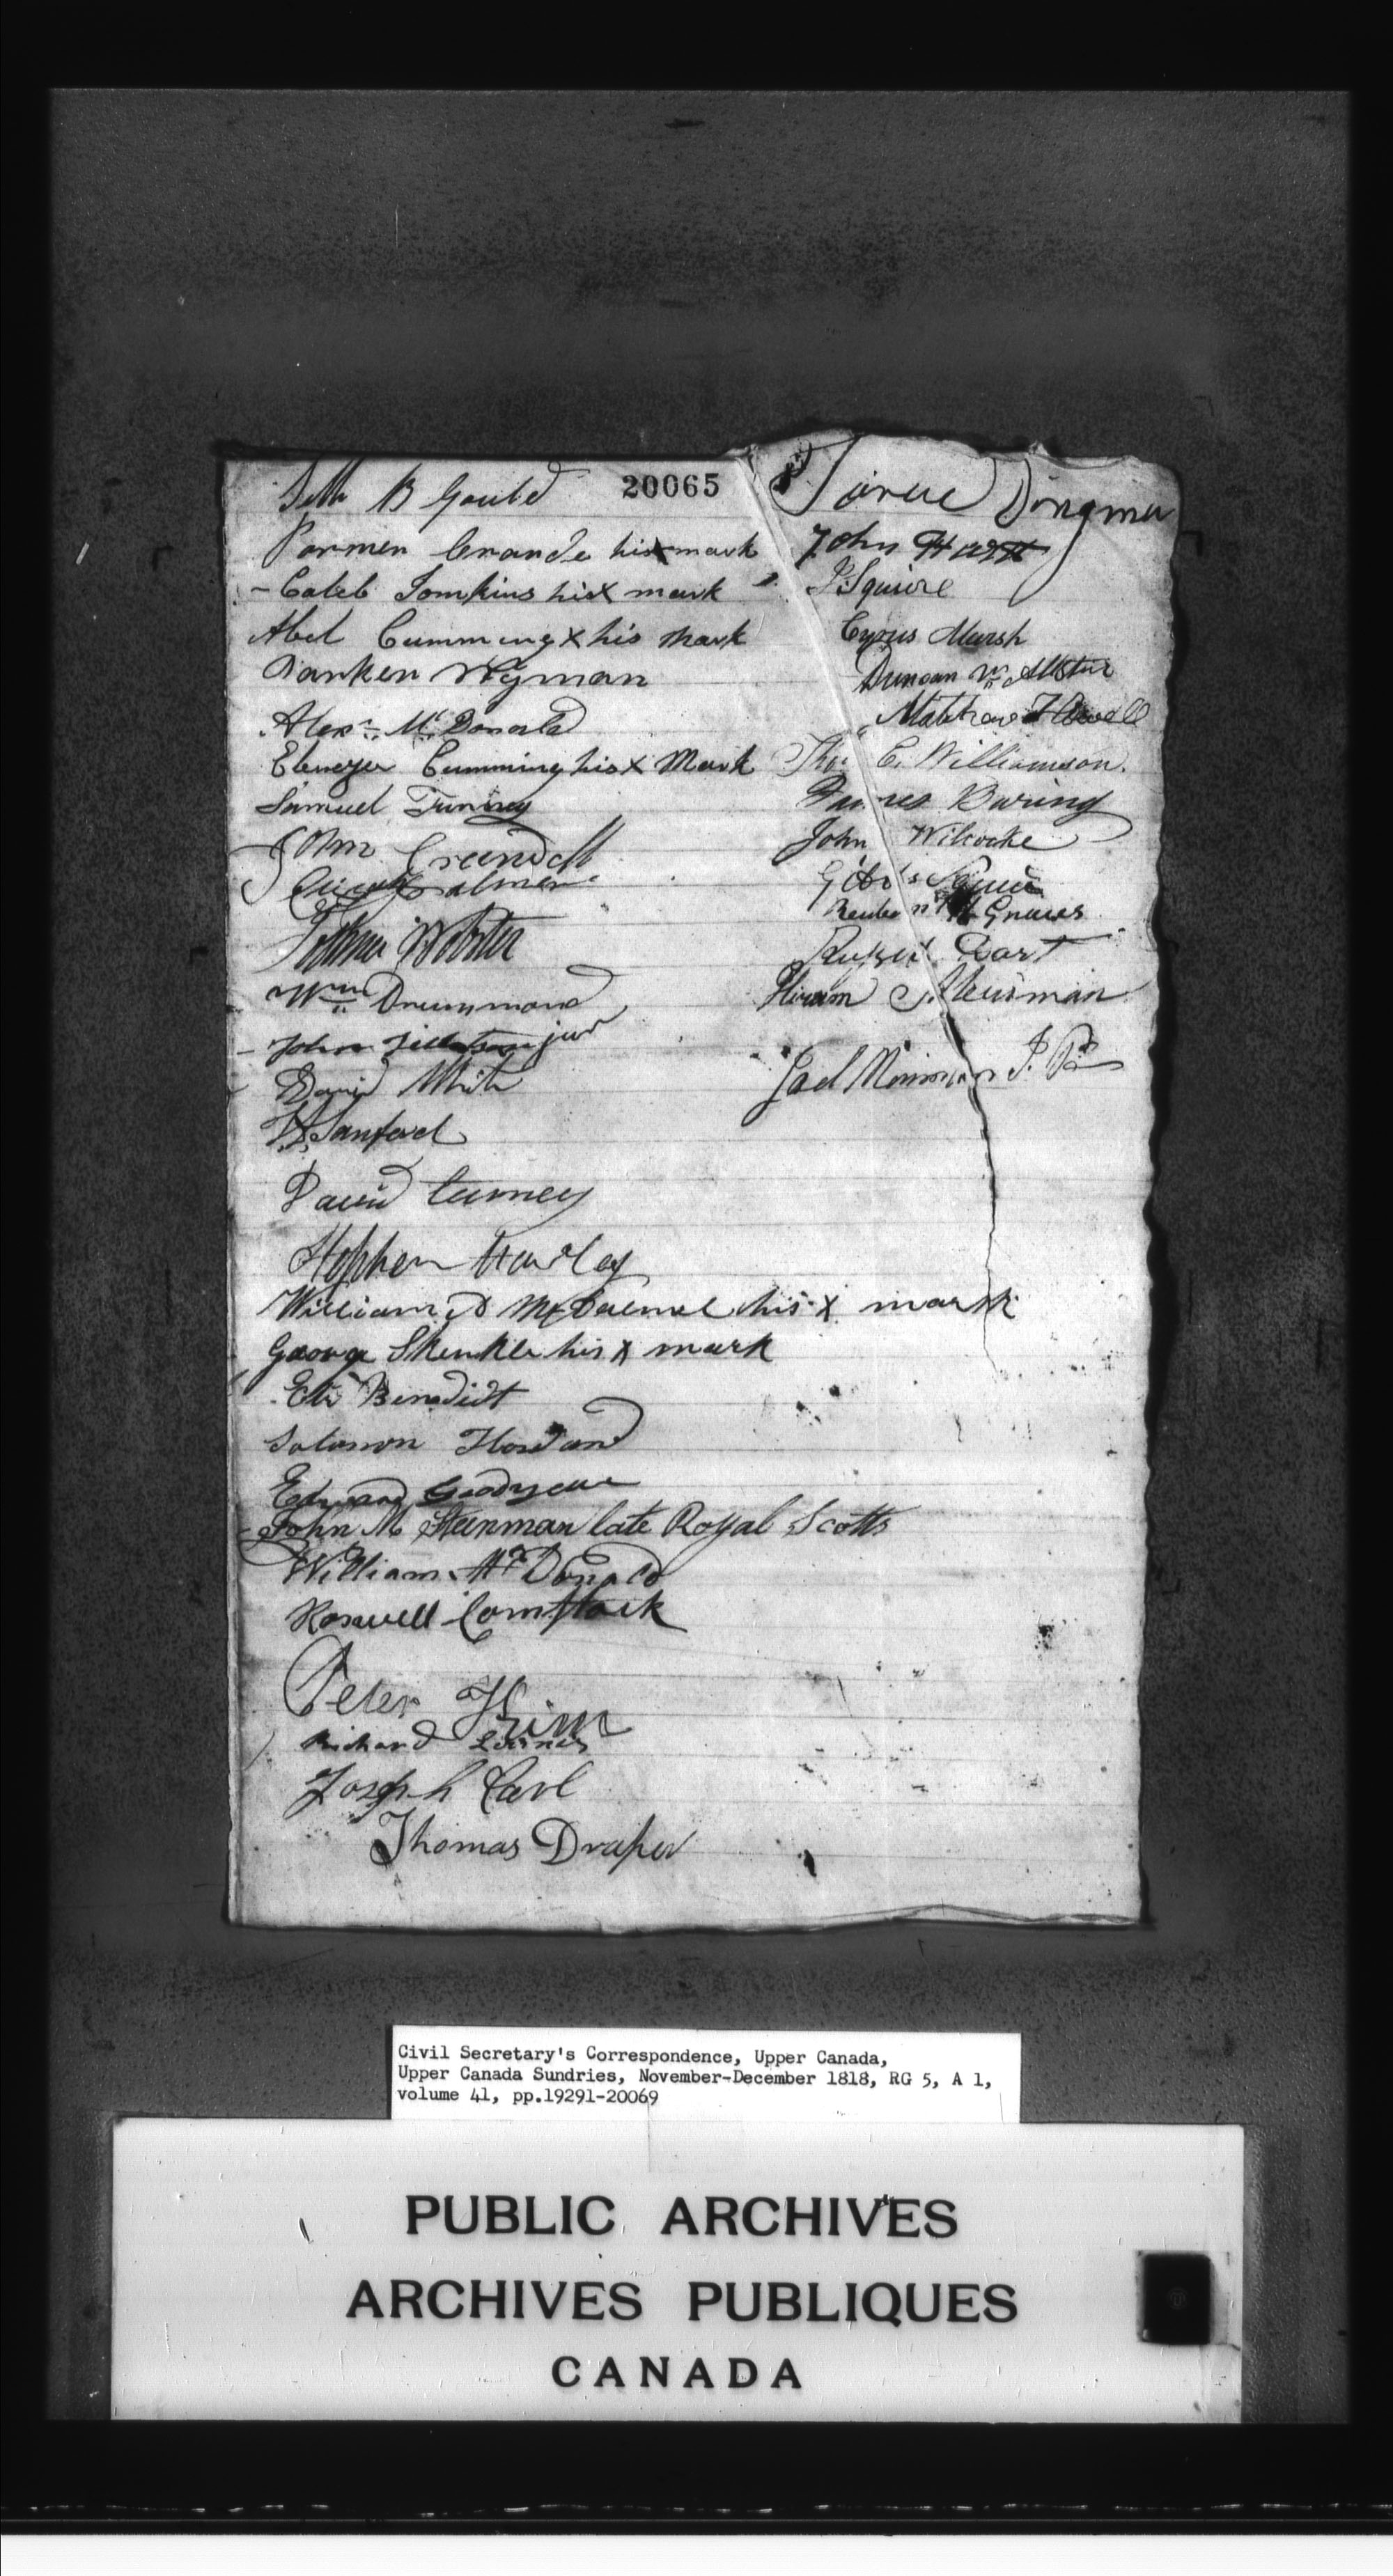 Seth B Gould
20065
Parmer Crande his x mark
- Caleb Tomkins his x mark
Abel Cumming x his mark
Darken Wyman
Alexr. McDonald
Ebenezer Cumming his x Mark
Samuel Turney
John Crandell
Palmer
Webster
Wm Drummond
- John Tillotson jur
David White
Sanford
David Curney
Stephen Hartley
William D his x mark
George Skinkle his x mark
Eli Benedict
Solomon
Edward Goodyear
John M Steinman late Royal Scotts
William McDonald
Roswell Comstock
Peter
Richard
Joseph Carl
Thomas Draper
Dingman
John
Squire
Cyrus Marsh
Duncan
Mathew
Thos C. Williamson.
James Buring
John Wilcocke
Squire
Reuben Graves
Dart
Hiram Steinman
Joel Merriman J. P.
Civil Secretary's Correspondence, Upper Canada,
Upper Canada Sundries, November-December 1818, RG 5, A 1,
volume 41, pp.19291-20069
PUBLIC ARCHIVES
ARCHIVES PUBLIQUES
CANADA